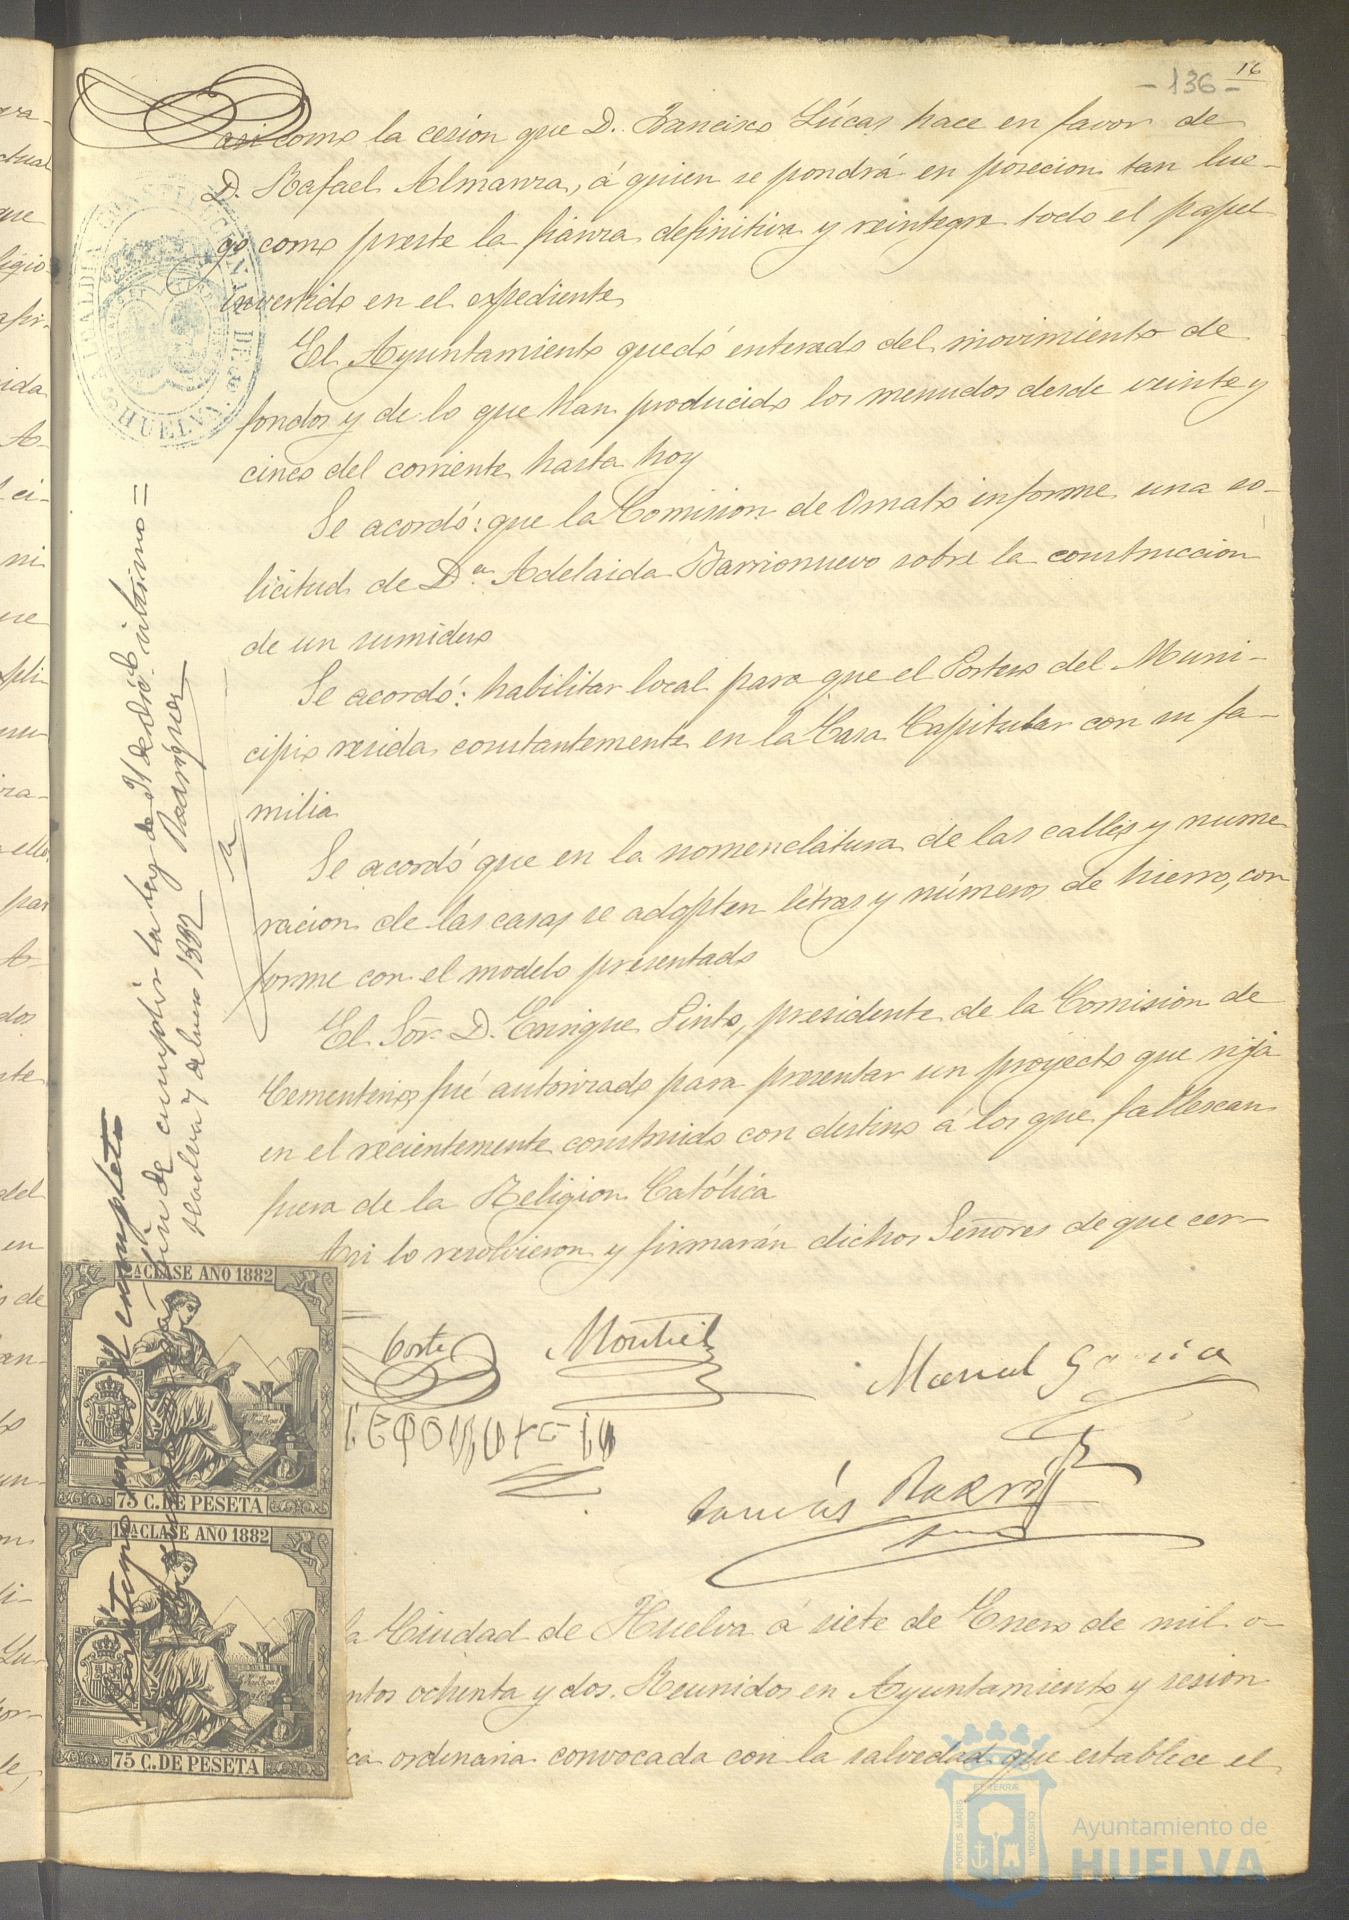 16
- 136 -
así como la cesion que D. Francisco Lúcas hace en favor de
D. Rafael Almanza, á quien se pondrá en posecion tan lue-
go como preste la fianza definitiva y reintegre todo el papel
invertido en el expediente
El Ayuntamiento quedó enterado del movimiento de
fondos y de lo que han producido los menudos desde veinte y
cinco del corriente hasta hoy
Se acordó: que la Comision de Ornato informe una so-
licitud de Dª Adelaida Barrionuevo sobre la construccion
de un sumidero
Se acordó: habilitar local para que el Portero del Muni-
cipio resida constantemente en la Casa Capitular con su fa-
milia
Se acordó que en la nomenclatura de las calles y nume
racion de las casas se adopten letras y números de hierro, con
forme con el modelo presentado
El Sor. D. Enrique Pinto, presidente de la Comision de
Cementerios fué autorizado para presentar un proyecto que rija
en el recientemente construido con destino á los que fallescan
fuera de la Religion Católica
Asi lo resolvieron y firmarán dichos Señores de que cer-
Corte
Montiel
Manuel Garcia
Tomás
la Ciudad de Huelva á siete de Enero de mil o-
ntos ochenta y dos. Reunidos en Ayuntamiento y sesion
ica ordinaria convocada con la salvedad que establece el
ALCALDIA CONSTITUCIONAL DE HUELVA
el completo
fin de cumplir la ley de 31 de último =
Huelva 7 de Enero 1882 Rodriguez
12ª CLASE AÑO 1882
75 C. DE PESETA
12ª CLASE AÑO 1882
75 C. DE PESETA
PORTUS MARIS
ET TERRAE
CUSTODIA
Ayuntamiento de
HUELVA